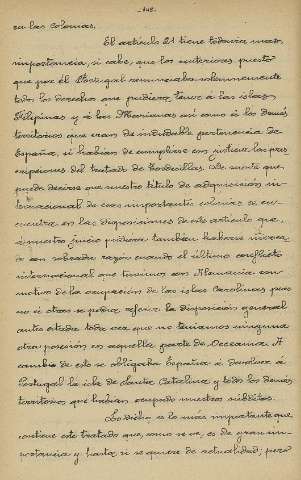 -148-
en las colonias.
El artículo 21 tiene todavía mas
importancia, si cabe, que los anteriores puesto
que por él Portugal renunciaba solemnemente
todos los derechos que pudiera tener á las islas
Filipinas y á las Marianas así como á los demás
territorios que eran de indudable pertenencia de
España, si habían de cumplirse con justicia las pres
cripciones del tratado de Tordesillas. De suerte que
puede decirse que nuestro título de adquisición in-
ternacional de esas importantes colonias se en-
cuentra en las disposiciones de este artículo que,
á nuestro juicio pudiera también haberse invoca-
do con sobrada razón cuando el último conflicto
internacional que tuvimos con Alemania con
motivo de la ocupación de las islas Carolinas pues
no á otras se podía referir la disposición general
antes citada toda vez que no teníamos ninguna
otra posesión en aquella parte de Oceanía. A
cambio de esto se obligaba España á devolver á
Portugal la isla de Santa Catalina y todos los demás
territorios que habían ocupado nuestras huestes.
Lo dicho es lo más importante que
contiene este tratado que, como se ve, es de gran im-
portancia y hasta si se quiere de actualidad; pero